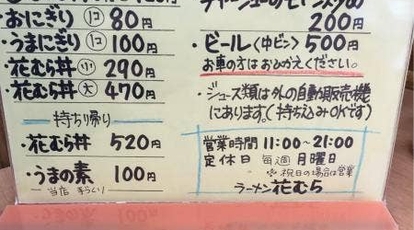 ・おにぎり 1コ 80円
・うまにぎり 1コ 100円
・花むら丼 小 290円
・花むら丼 大 470円
持ち帰り
・花むら丼 520円
・うまの素 100円
当店 手づくり
200円
・ビール〈中ビン〉500円
お車の方はおひかえください。
・ジュース類は外の自動販売機
にあります。(持ち込みOKです)
営業時間 11:00~21:00
定休日 毎週月曜日
※祝日の場合は営業
ラーメン花むら